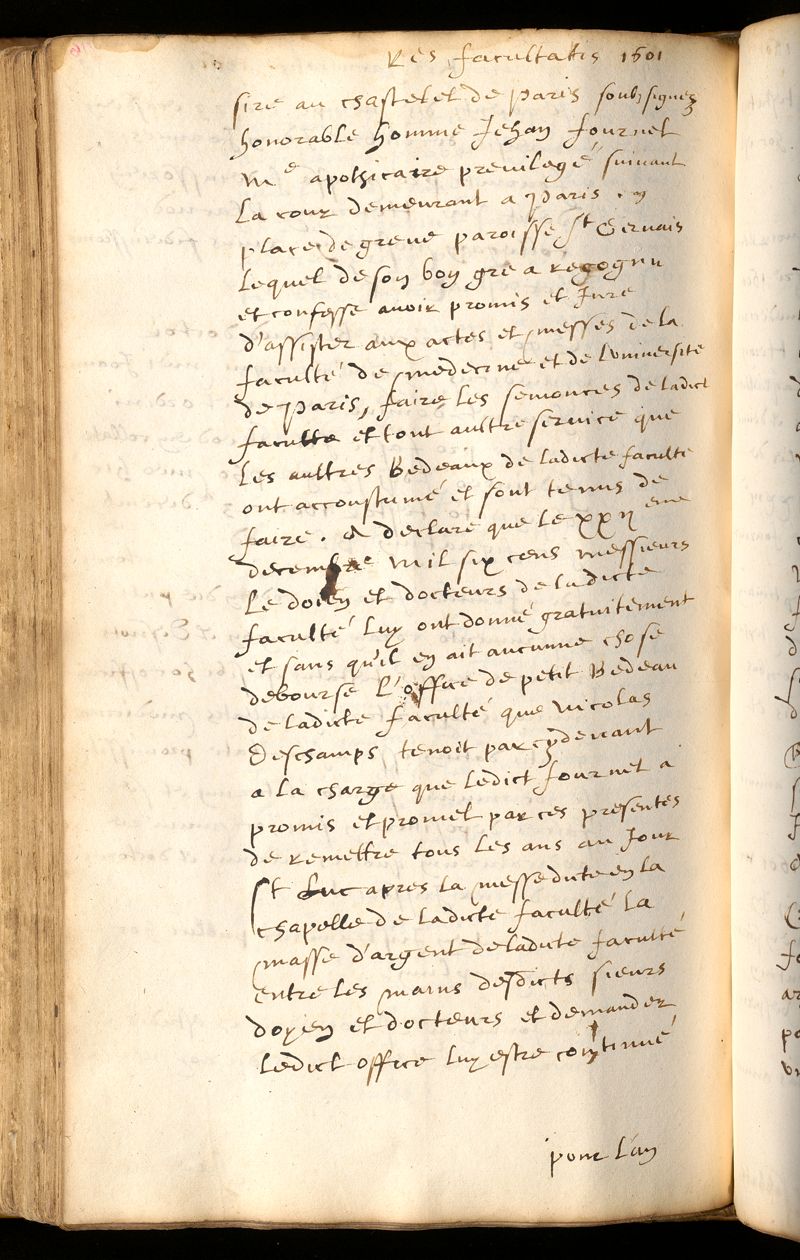 Res facultatis 1601
sire au chastelet de Paris soubzsignez
honorable homme Jehan fournet
Me apothicaire previlegé suivant
la cour demeurant a Paris en
place de greve paroisse St Gervais
lequel de son bon gre a recognu
et confesse avoir promis et Juré
d'assister aux actes et messes de la
faculté de medecine et de l'université
de Paris, faire les semonces de ladict
faculté et tout aultre service que
les aultres Bedeaux de ladicte faculté
ont accoustumé et sont tenus de
faire. & declare que le xxii eme
decembre mil six cens messieurs
le doien et docteurs de ladicte
faculté luy ont donné gratuitement
et sans qu'il en ait aucunne chose
debourse l'office de petit Bedeau
de ladicte faculté que Nicolas
Deschamps tenoit par cydevant
a la charge que ledict fournet a
promis et promet par ces presentes
de remettre tous les ans au Jour
St Luc apres la messe dicte en la
chapelle de ladicte faculté la
masse d'argent de ladicte faculté
entre les mains desdicts sieurs
doyen et docteurs et demander
ledict office luy estre continué
pour l'an